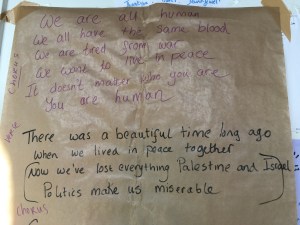 We are all human
We all have the same blood
We are tired from war
We want to live in peace
It doesn't matter who you are
You are human
Chorus
There was a beautiful time long ago
when we lived in peace together
Now we've lost everything Palestine and Israel
Politics make us miserable
Chorus